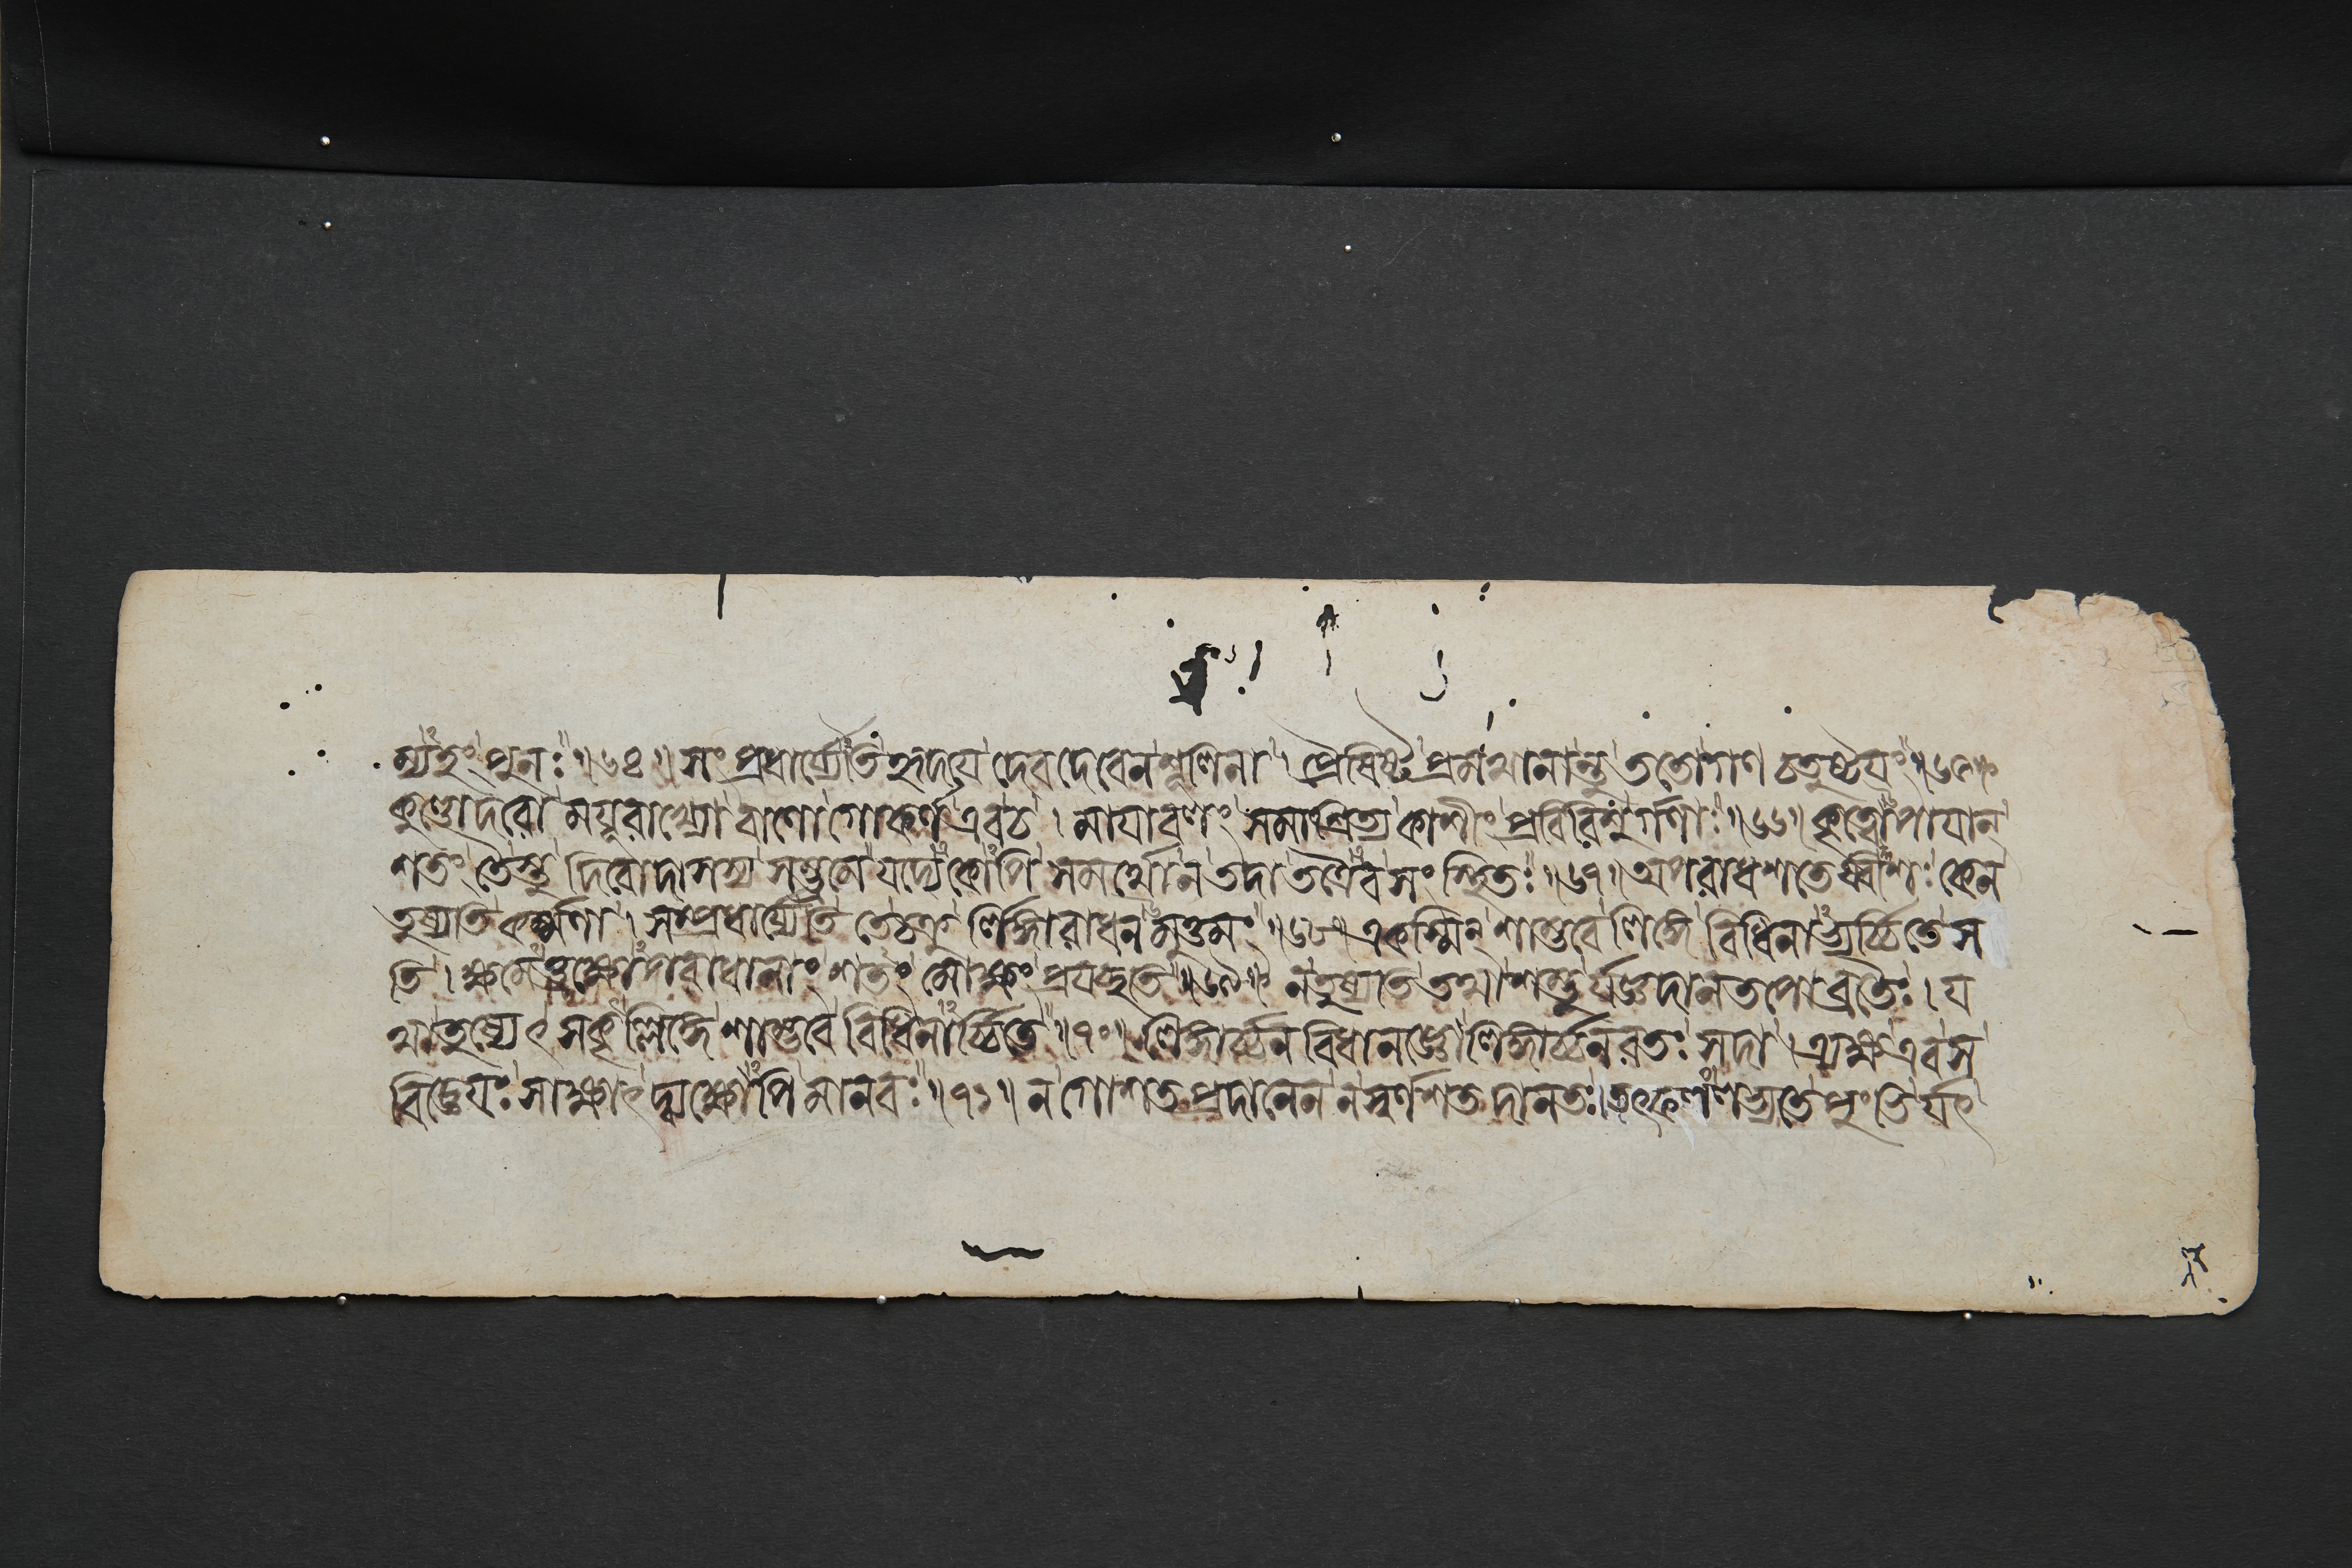 ম্যহং পুনঃ ॥ ৬৪ ॥ সংপ্রধার্য্যেতি হৃদয়ে দেবদেবেন শূলিনা । প্রৈষিষ্ট প্রমথানান্তু ততো গণচতুষ্টয়ং ॥ ৬৫ ॥
কুণ্ডোদরো ময়ূরাখ্যো বাণো গোকর্ণ এব চ । মায়াবলং সমাশ্রিত্য কাশীং প্রবিবিশুর্গণাঃ ॥ ৬৬ ॥ কৃত্বোপায়ান্
শতং তৈস্তু দিবোদাসস্য সম্ভ্রমে যদ্যেকোপি সমর্থো ন তদা তত্রৈব সংস্থিতঃ ॥ ৬৭ ॥ অপরাধশতেষ্বীশঃ কেন
তুষ্যতি কর্ম্মণা । সম্প্রধার্য্যেতি তে চক্রুর্লিঙ্গারাধনমুত্তমং ॥ ৬৮ ॥ একস্মিন্ শাম্ভবে লিঙ্গে বিধিনাভ্যর্চ্চিতে স
তি । ক্ষমেত্ত্র্যক্ষোপরাধানাং শতং মোক্ষং প্রযচ্ছতি ॥ ৬৯ ॥ ন তুষ্যতি তথা শম্ভুর্যজ্ঞদানতপোব্রতৈঃ । য
থা তুষ্যেৎ সকৃল্লিঙ্গে শাম্ভবে বিধিনার্চ্চিতে ॥ ৭০ ॥ লিঙ্গার্চ্চনবিধানজ্ঞো লিঙ্গার্চ্চনরতঃ সদা । ত্র্যক্ষ এব স
বিজ্ঞেয়ঃ সাক্ষাৎ দ্ব্যক্ষোপি মানবঃ ॥ ৭১ ॥ ন গোশতপ্রদানেন ন স্বর্ণশতদানতঃ । তৎফলং লভ্যতে পুংভির্যৎ